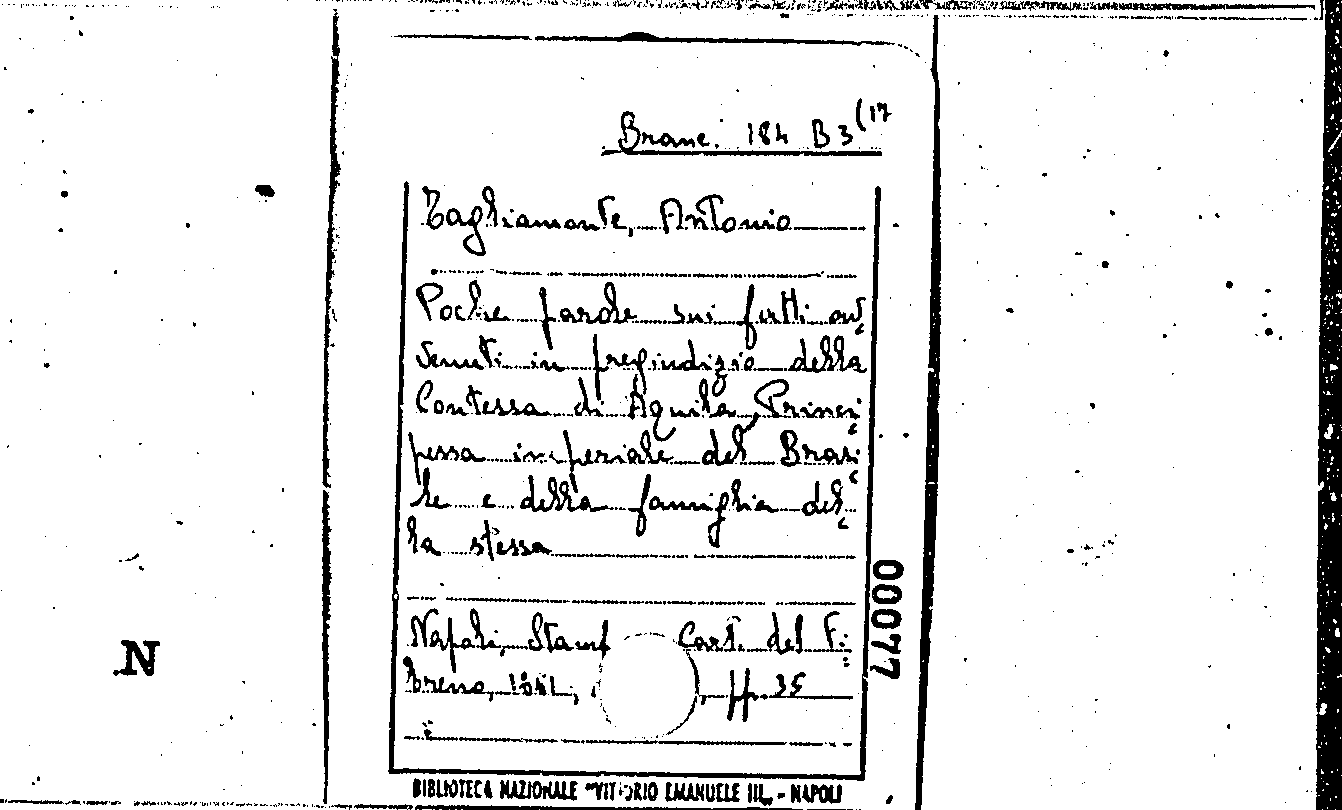 Branc. 184 B 3 (17
Tagliamonte, Antonio
Poche parole sui fatti av
venuti in pregiudizio della
Contessa di Aquila, Princi
pessa imperiale del Brasi
le e della famiglia del
la stessa
Napoli, Stamp Cart. del Fi
breno, pp. 35
00077
N
BIBLIOTECA NAZIONALE "VITTORIO EMANUELE III„ - NAPOLI